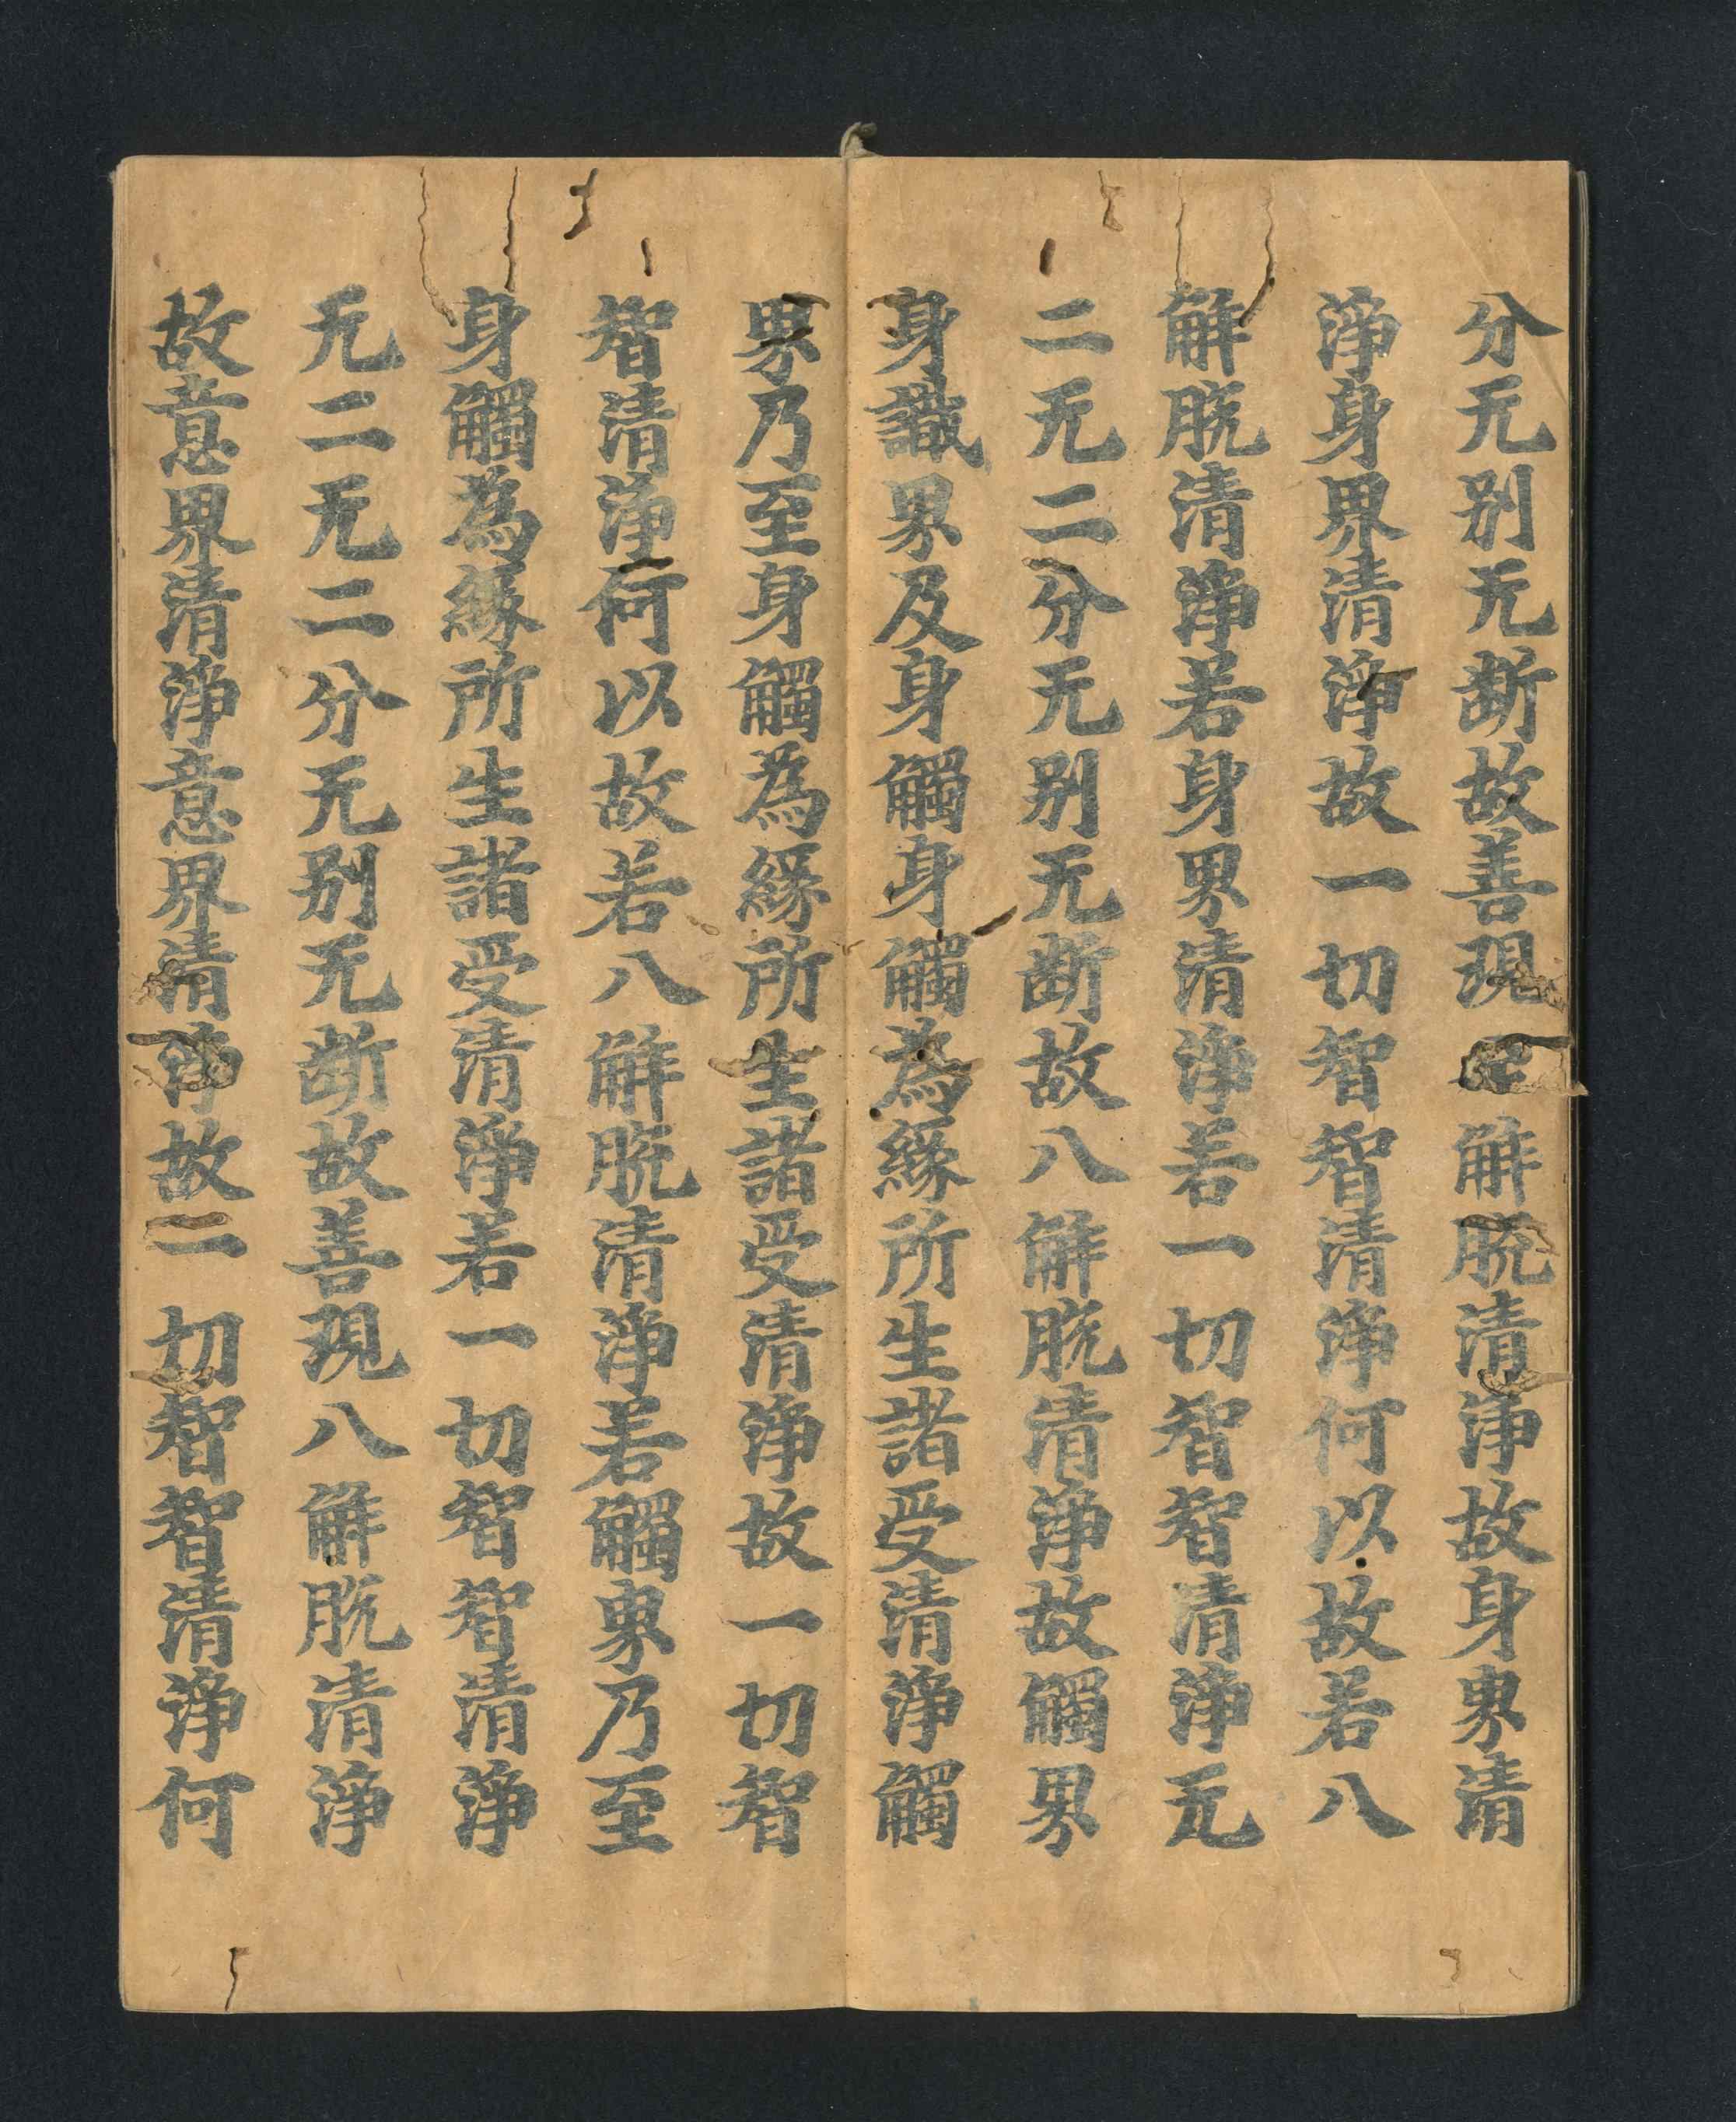 分无别无断故善現解脱清淨故身界清
淨身界清淨故一切智智清淨何以故若八
解脱清淨若身界清淨若一切智智清淨无
二无二分无别无断故八解脱清淨故觸界
身識界及身觸身觸為緣所生諸受清淨觸
界乃至身觸為緣所生諸受清淨故一切智
智清淨何以故若八解脱清淨若觸界乃至
身觸為緣所生諸受清淨若一切智智清淨
无二无二分无别无断故善現八解脱清淨
故意界清淨意界清淨故一切智智清淨何